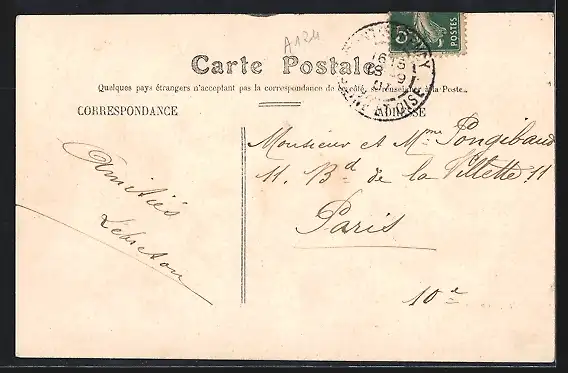 A124
5
POSTES
Carte Postale
Quelques pays étrangers n'acceptent pas la correspondance de ce côté, se renseigner à la Poste.
CORRESPONDANCE
SEINE ET OISE
Amitiés
Lebreton
Monsieur et Mme Pongibaud
11. Bd de la Villette 11
Paris
10e